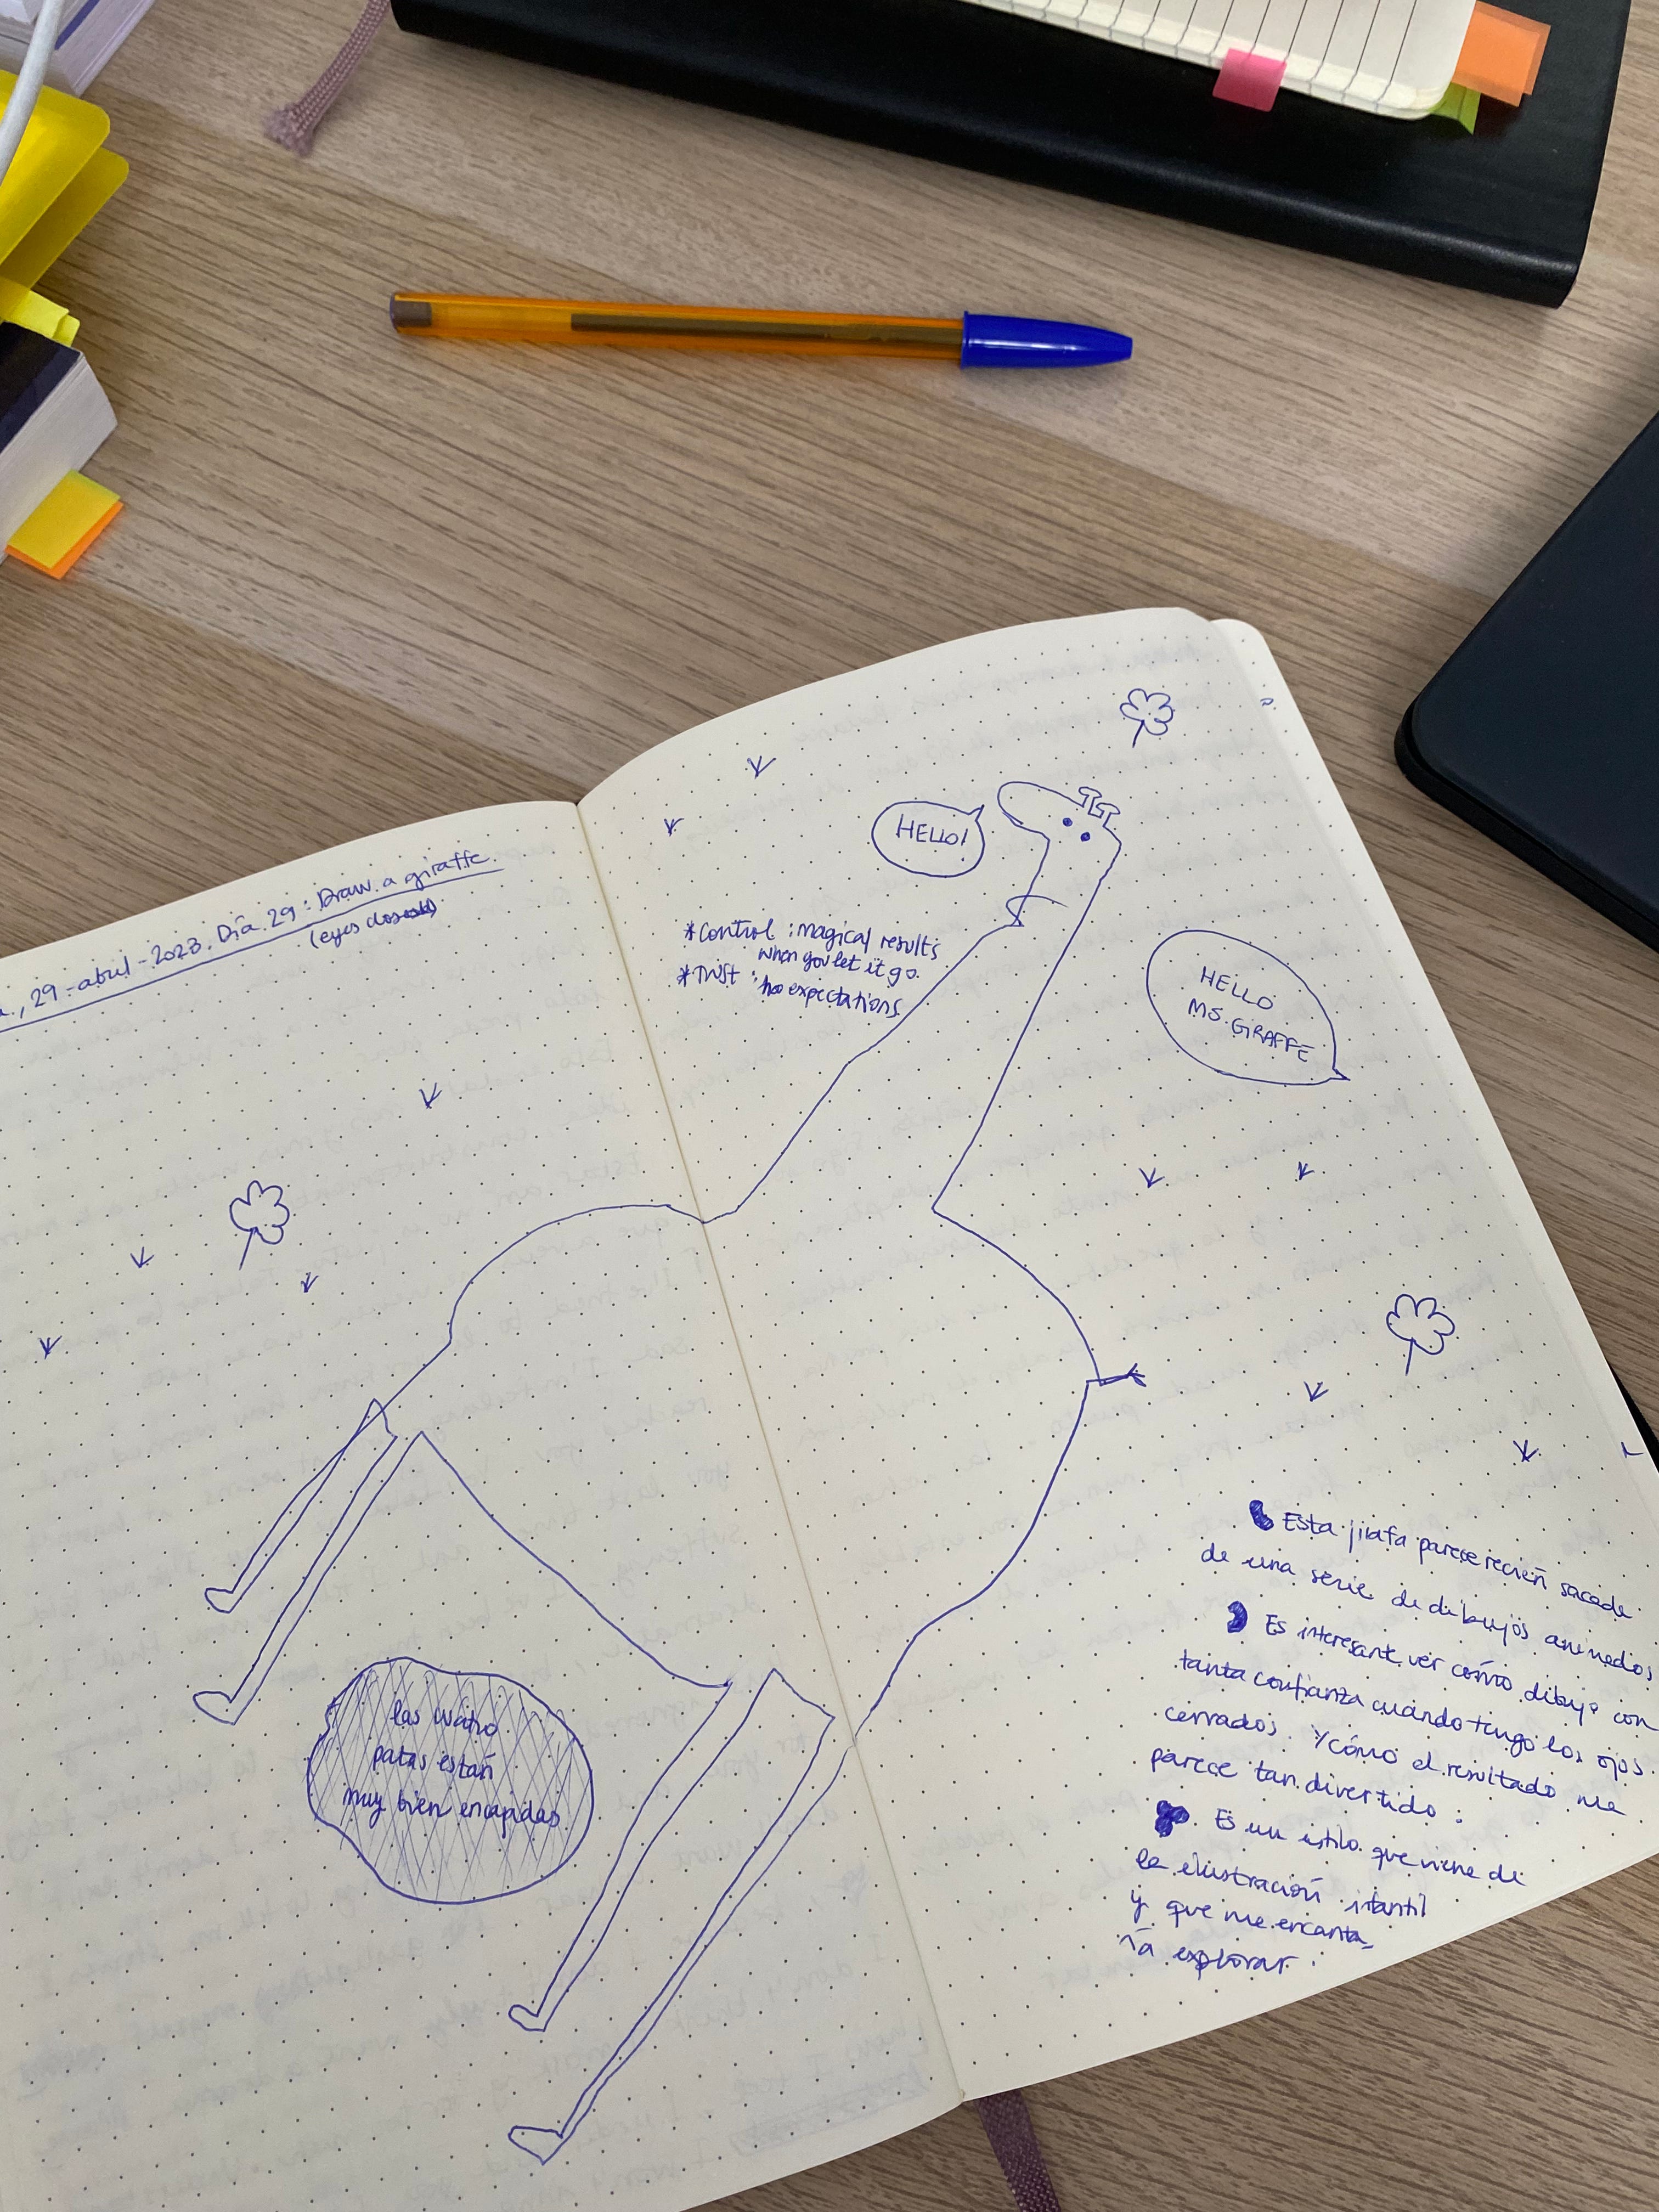 29-abril-2023. Día 29: Draw a giraffe.
(eyes closed)
HELLO!
*Control: magical results
when you let it go.
*Trust: no expectations
HELLO
MS. GIRAFFE
Esta jirafa parece recién sacada
de una serie de dibujos animados
Es interesante ver cómo dibujo con
tanta confianza cuándo tengo los ojos
cerrados. Y cómo el resultado me
parece tan divertido.
Es un estilo que viene de
la ilustración
y que me encanta
explorar.
las cuatro
patas están
muy bien encajadas